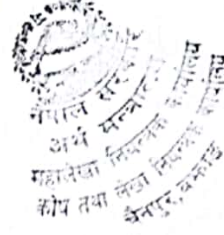 नेपाल सरकार
अर्थ मन्त्रालय
महालेखा नियन्त्रक कार्यालय
कोष तथा लेखा नियन्त्रक कार्यालय
चैनपुर, बझाङ